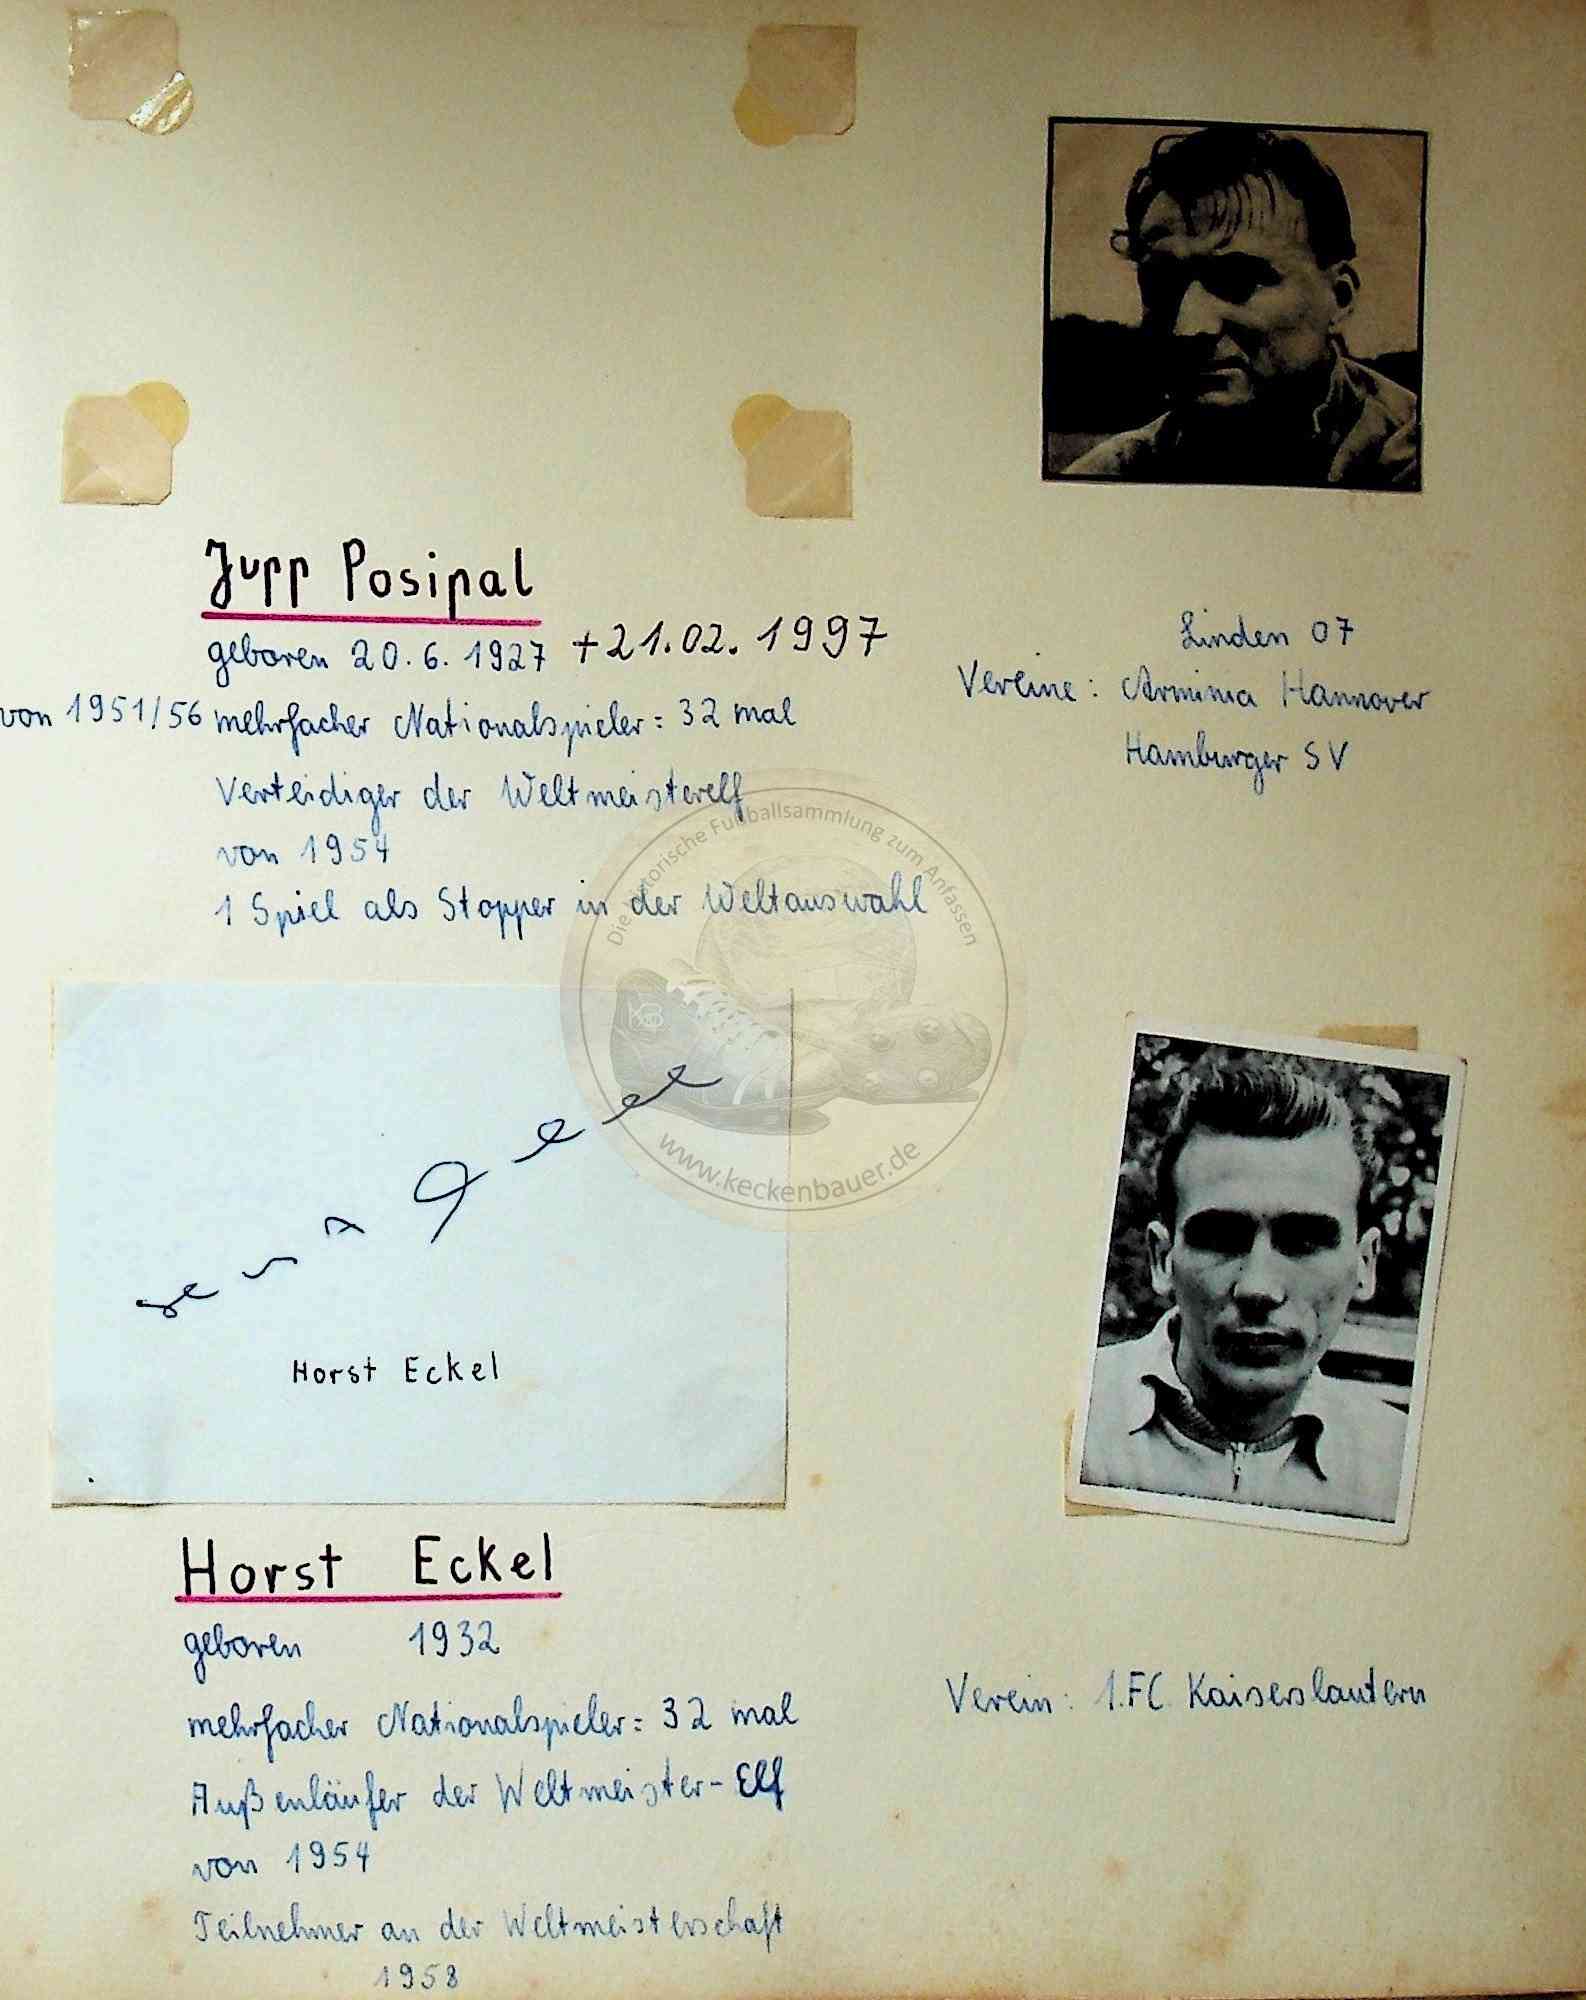 Jupp Posipal
geboren 20.6.1927 +21.02.1997
von 1951/56 mehrfacher Nationalspieler: 32 mal
Verteidiger der Weltmeisterelf
von 1954
1 Spiel als Stopper in der Weltauswahl
Linden 07
Vereine: Arminia Hannover
Hamburger SV
Die historische Fußballsammlung zum Anfassen
www.keckenbauer.de
Horst Eckel
Horst Eckel
geboren 1932
mehrfacher Nationalspieler: 32 mal
Außenläufer der Weltmeister-Elf
von 1954
Teilnehmer an der Weltmeisterschaft
1958
Verein: 1.FC Kaiserslautern